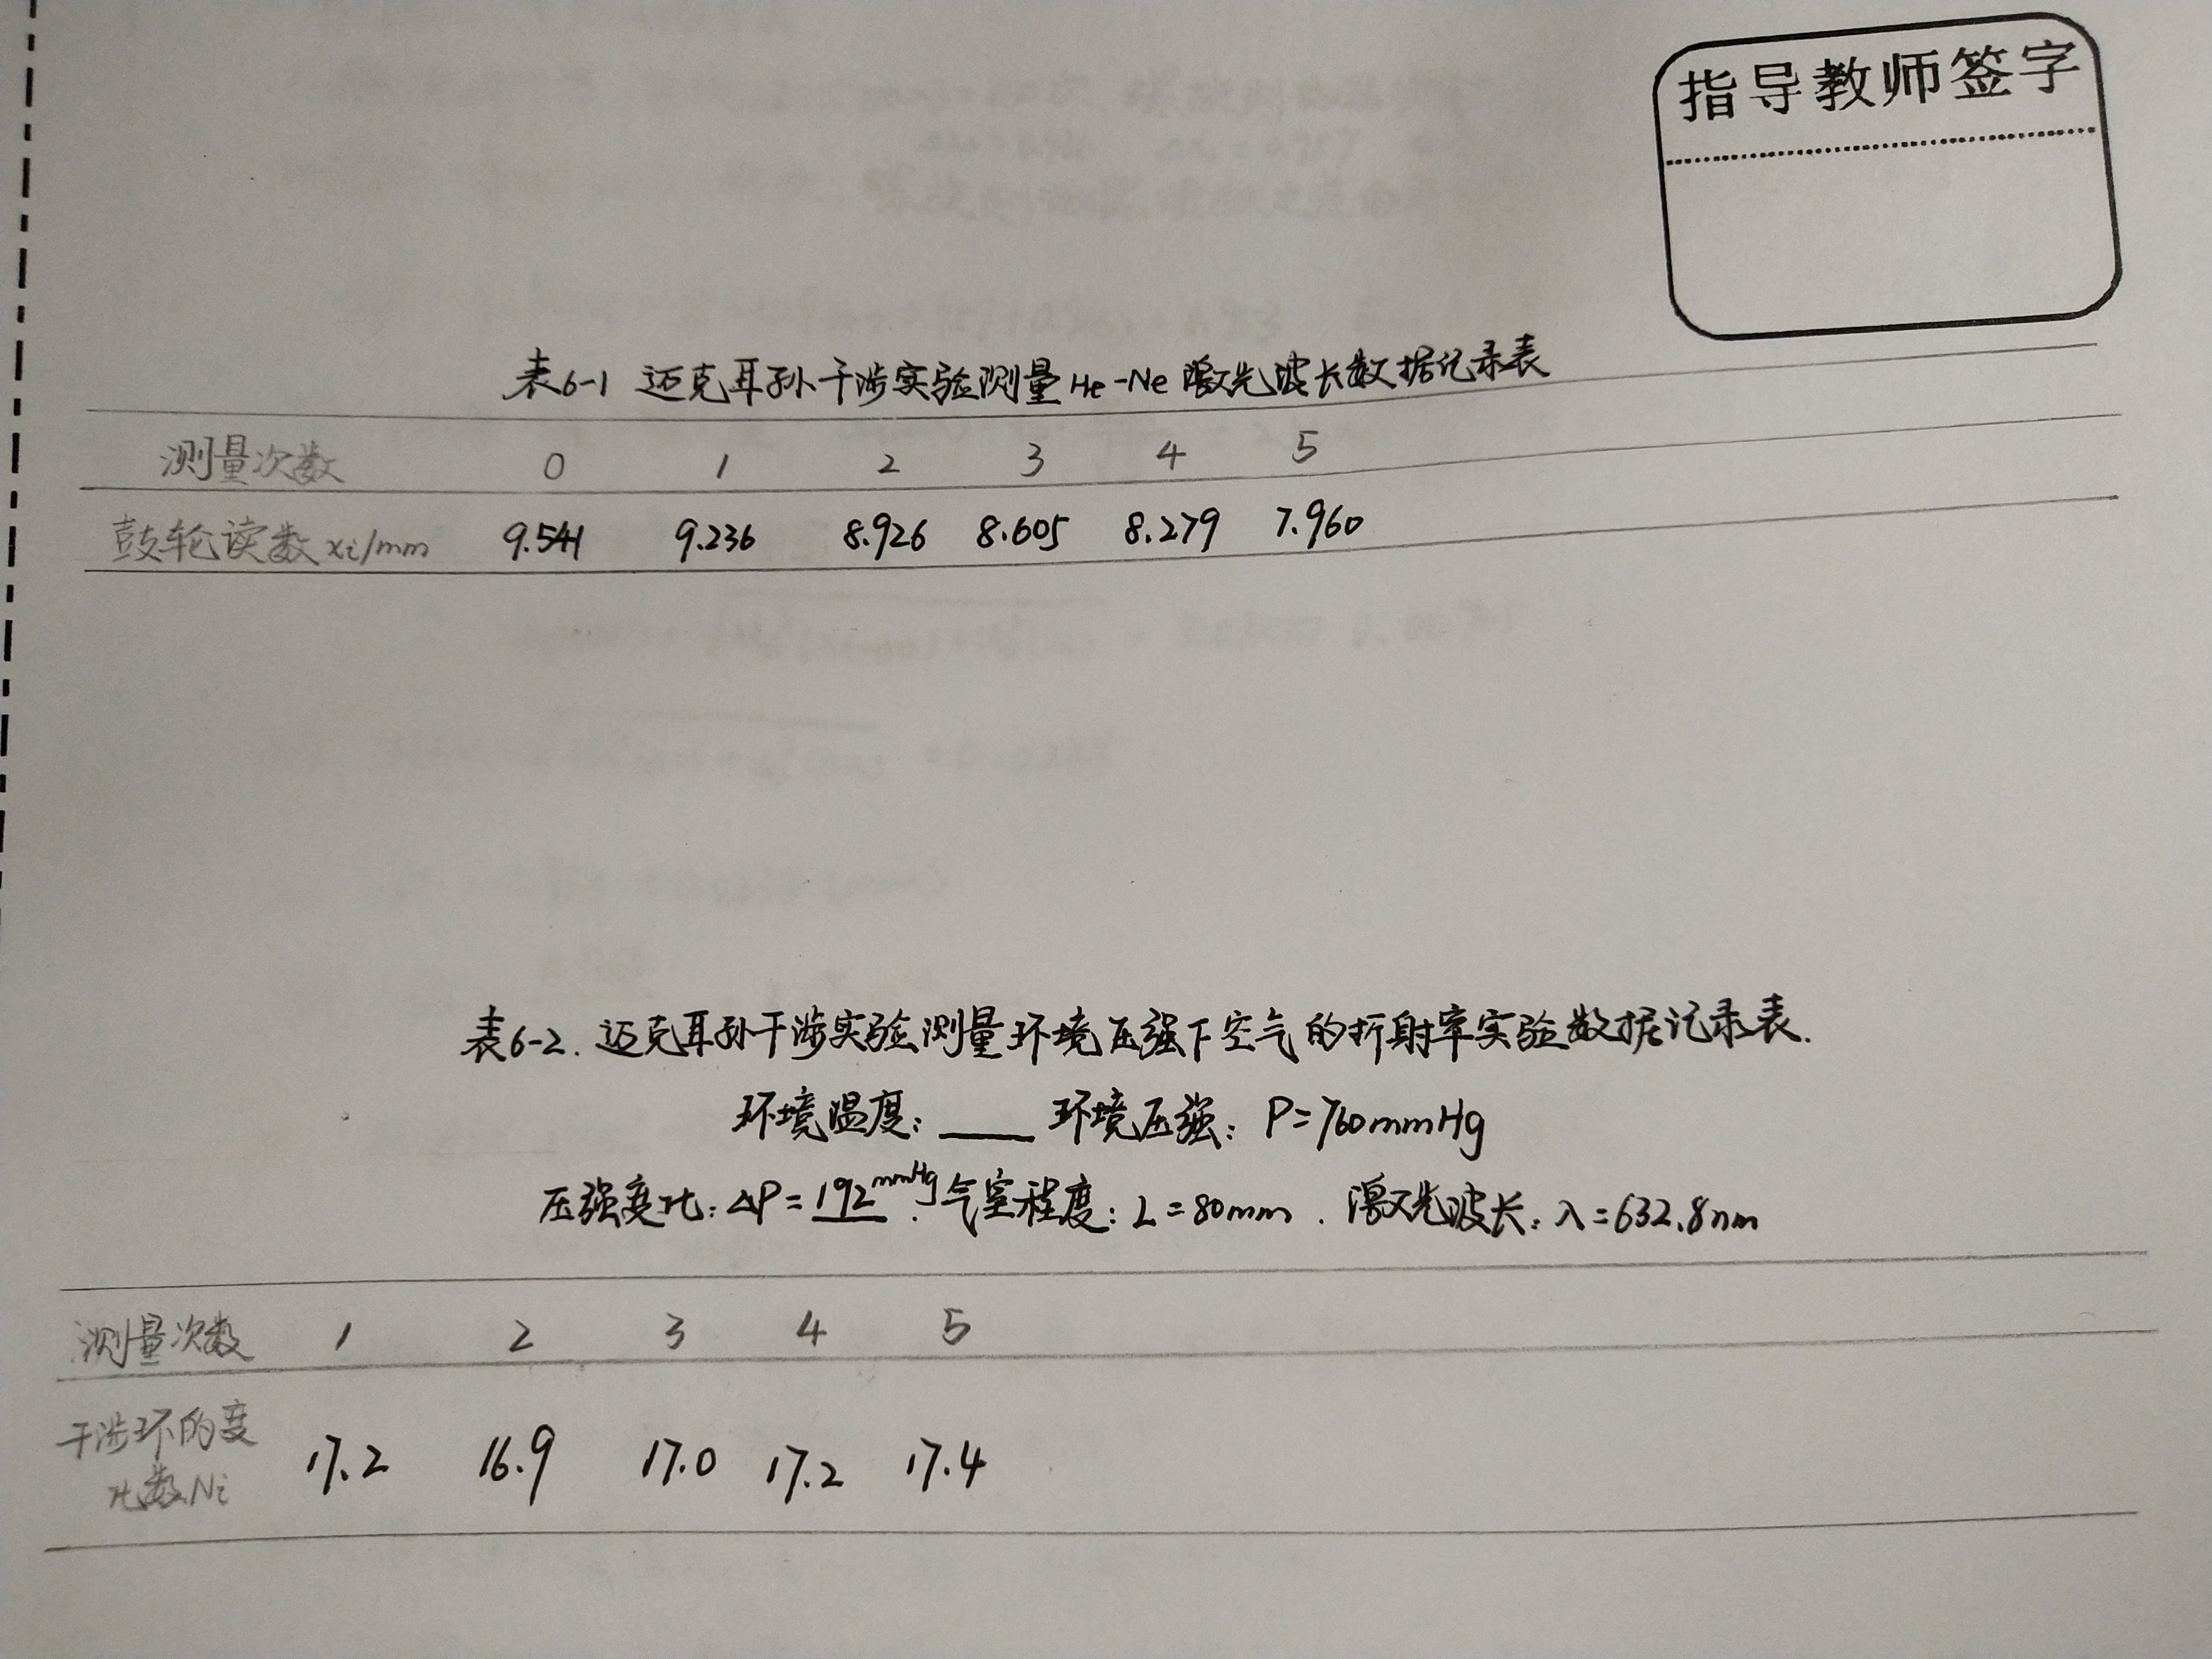 指导教师签字
表6-1 迈克耳孙干涉实验测量He-Ne激光波长数据记录表
测量次数 0 1 2 3 4 5
鼓轮读数xi/mm 9.541 9.236 8.926 8.605 8.279 7.960
表6-2. 迈克耳孙干涉实验测量环境压强下空气的折射率实验数据记录表.
环境温度: ____ 环境压强: P=760mmHg
压强变化: ΔP=192mmHg. 气室程度: L=80mm. 激光波长: λ=632.8nm
测量次数 1 2 3 4 5
干涉环的变
化数Ni 17.2 16.9 17.0 17.2 17.4